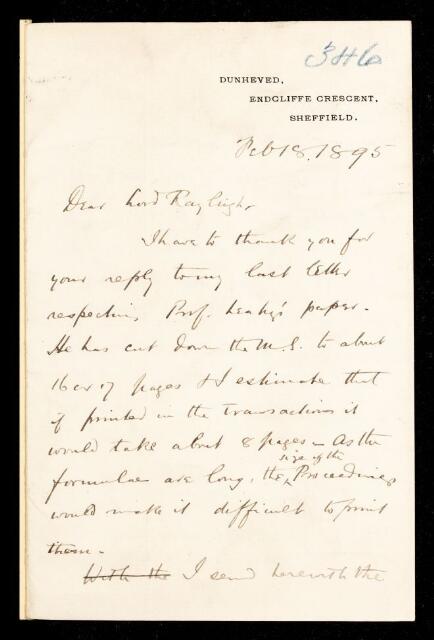 346
DUNHEVED,
ENDCLIFFE CRESCENT,
SHEFFIELD.
Feb 18. 1895
Dear Lord Rayleigh,
I have to thank you for
your reply to my last letter
respecting Prof. Leahy's paper.
He has cut down the M.S. to about
16 or 17 pages & I estimate that
if printed in the Transactions it
would take about 8 pages - As the
size of the
formulae are long, the Proceedings
would make it difficult to print
them -
With the I send herewith the